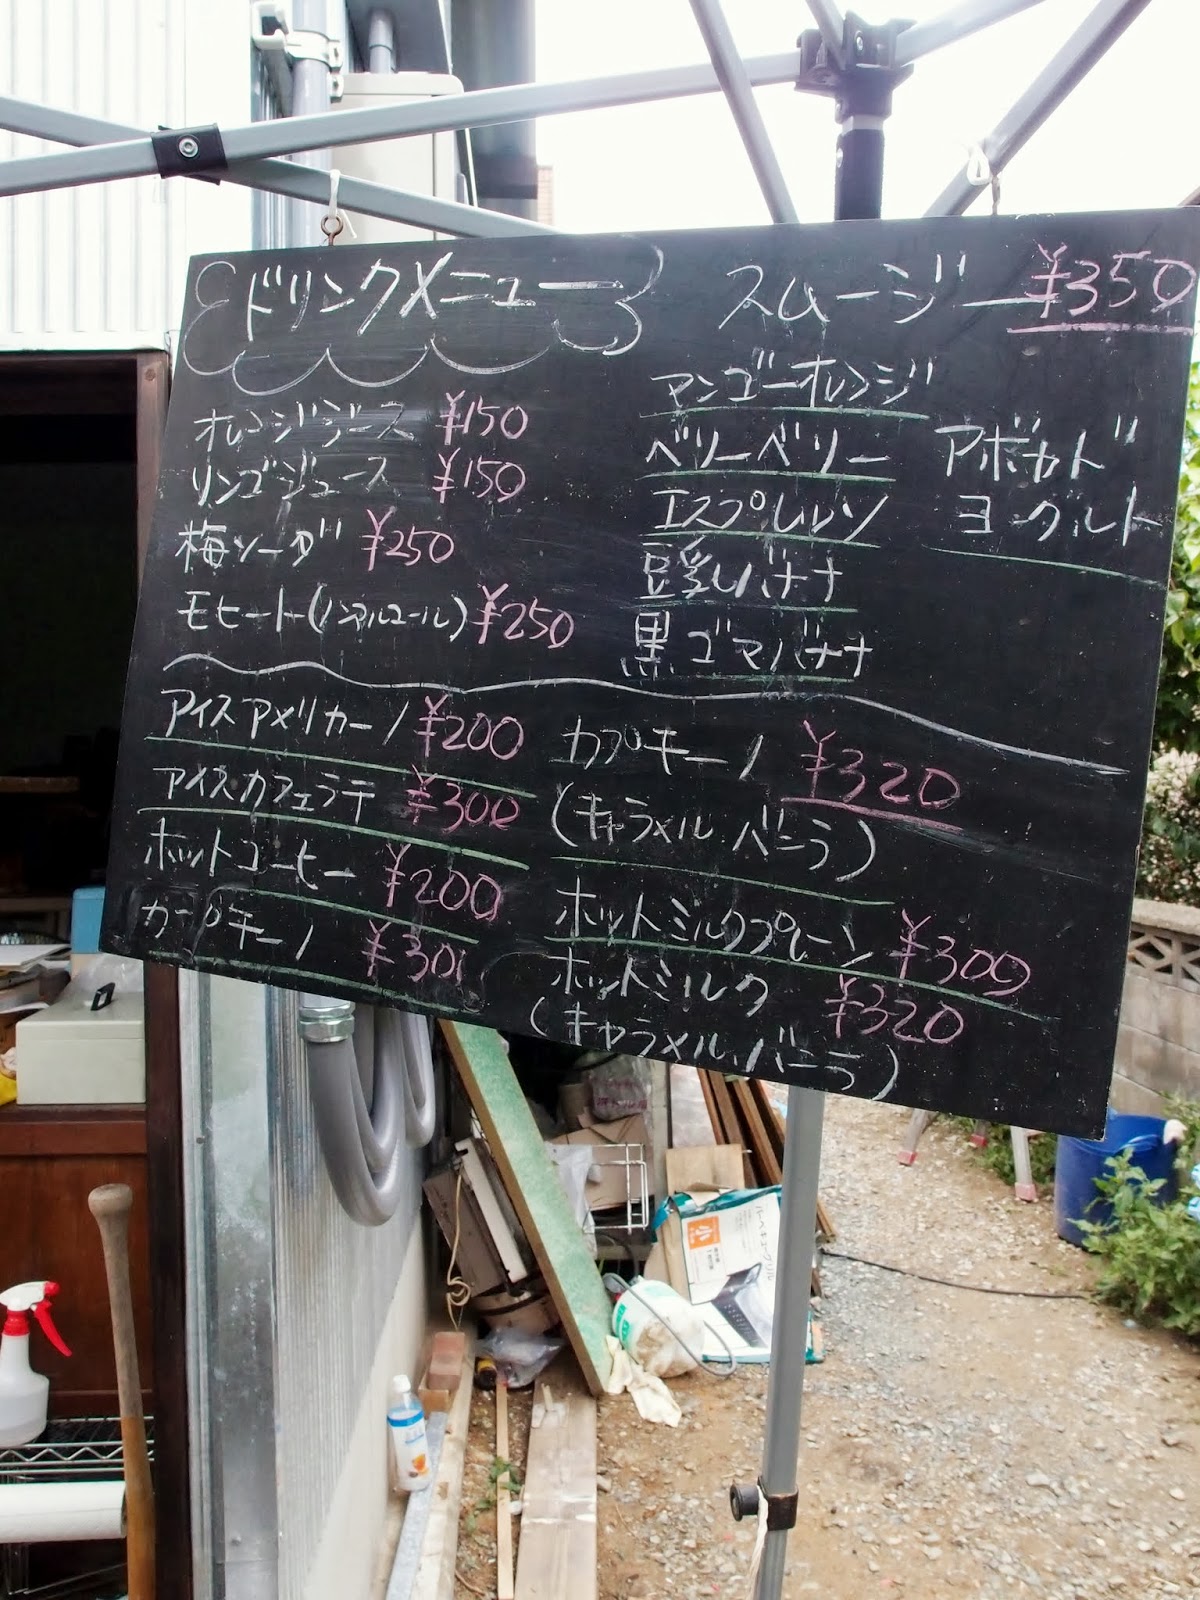 ドリンクメニュー
オレンジジース ¥150
リンゴジュース ¥150
梅ソーダ ¥250
モヒート(ノンアルコール) ¥250
スムージー ¥350
マンゴーオレンジ
ベリーベリー
エスプレッソ
豆乳バナナ
黒ゴマバナナ
アボカド
ヨーグルト
アイスアメリカーノ ¥200
アイスカフェラテ ¥300
ホットコーヒー ¥200
カープチーノ ¥300
カプチーノ ¥320
(キャラメル.バニラ)
ホットミルクプレーン ¥300
ホットミルク ¥320
(キャラメル.バニラ)
バーベキューグリル